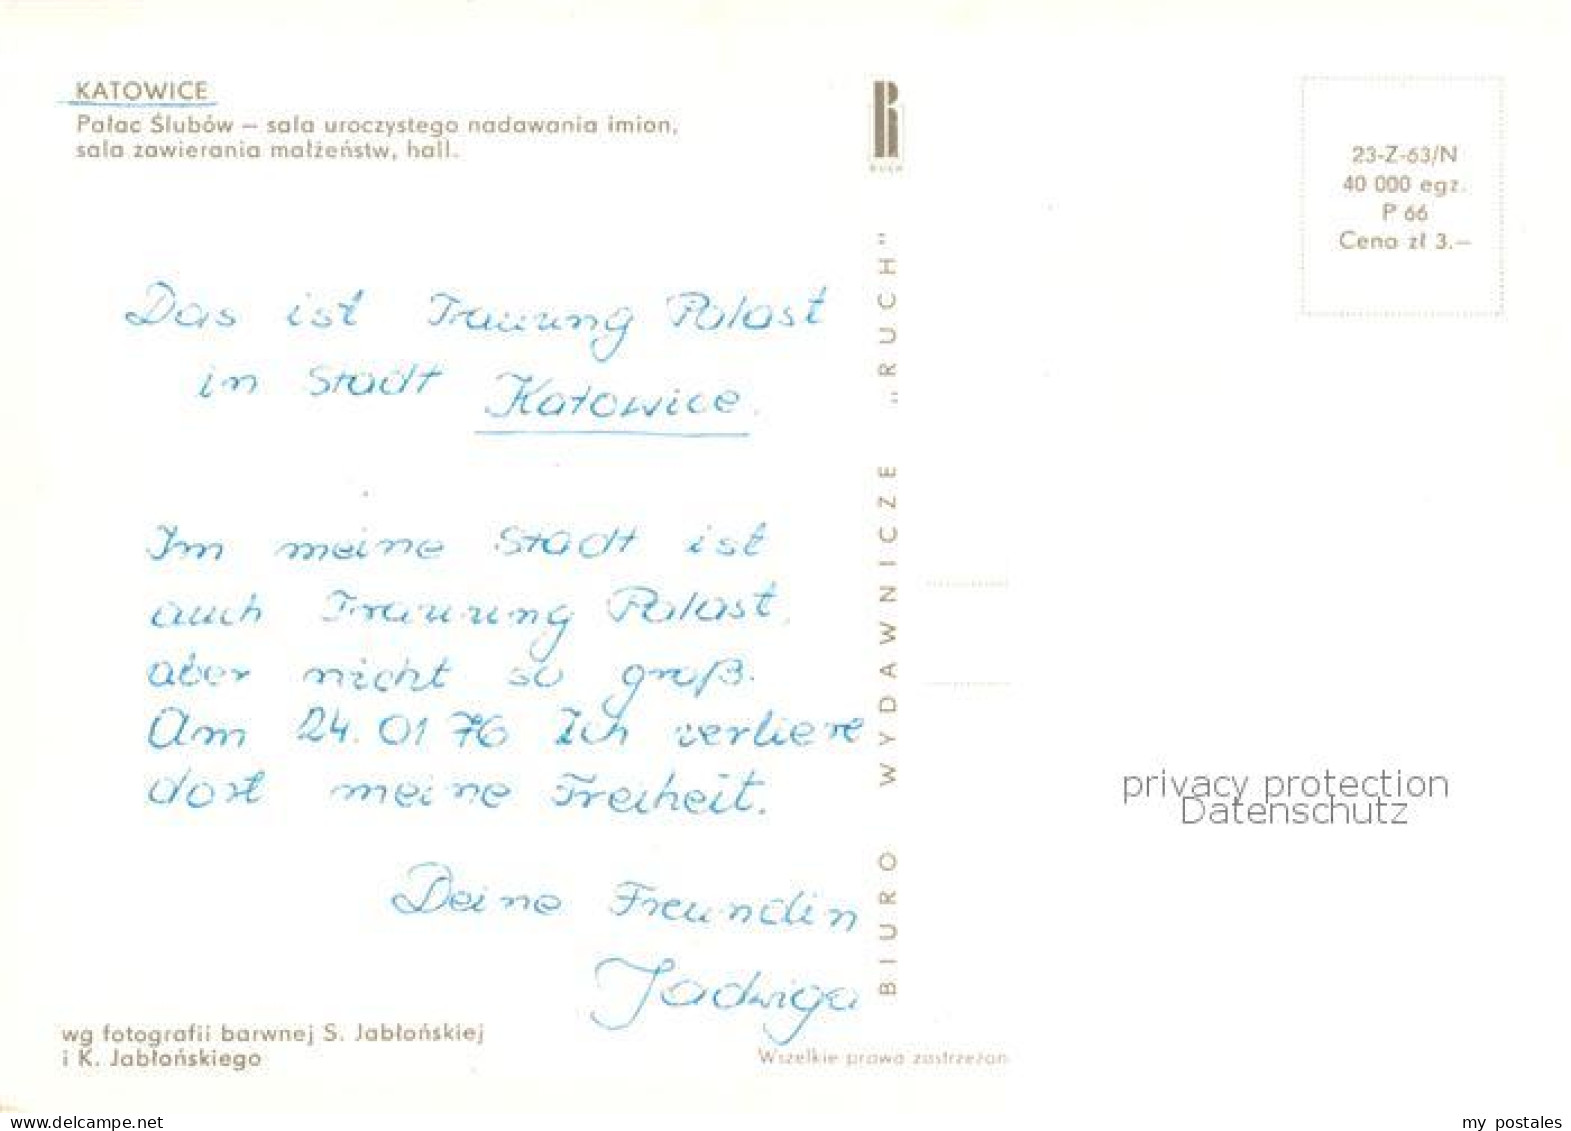 KATOWICE
Pałac Ślubów – sala uroczystego nadawania imion,
sala zawierania małżeństw, hall.
Das ist Trauung Palast
in Stadt Katowice.
Im meine Stadt ist
auch Trauung Palast,
aber nicht so groß.
Am 24.01 76 Ich verliere
dort meine Freiheit.
Deine Freundin
Jadwiga
wg fotografii barwnej S. Jabłońskiej
i K. Jabłońskiego
RUCH
BIURO WYDAWNICZE „RUCH"
Wszelkie prawa zastrzeżon
23-Z-63/N
40 000 egz.
P 66
Cena zł 3.—
privacy protection
Datenschutz
www.delcampe.net
my_postales